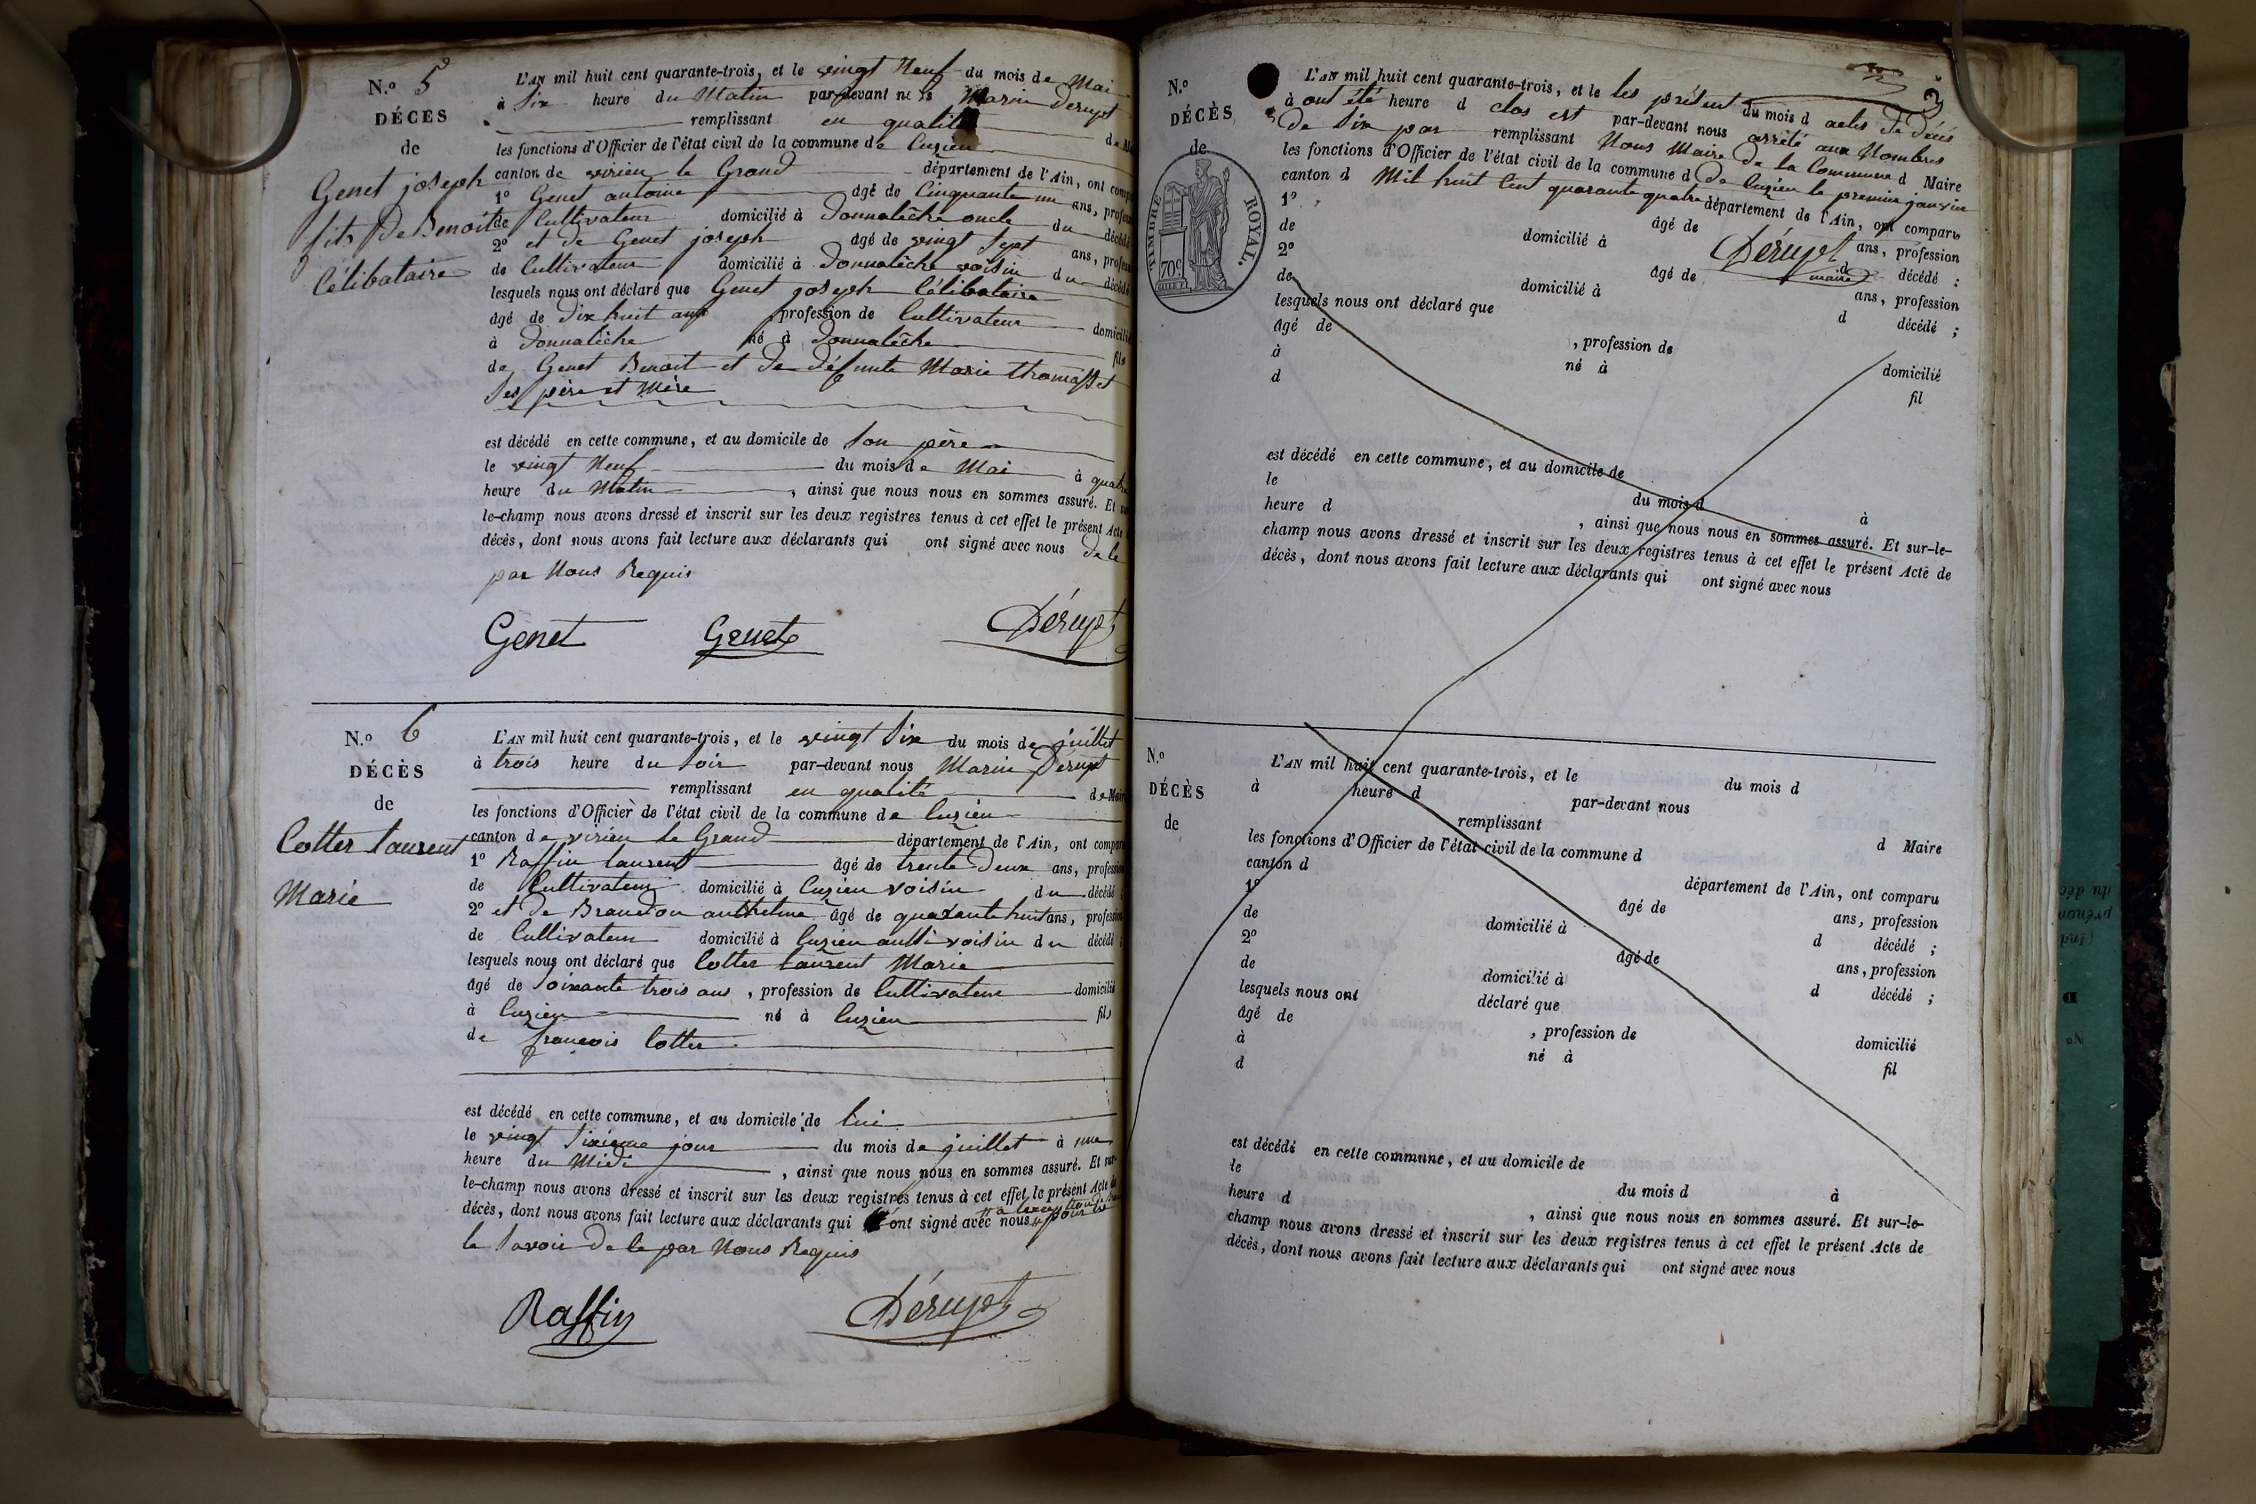 N.o 5
DÉCÈS
de
Genet joseph
fils de Benoit
Célibataire
L'AN mil huit cent quarante-trois, et le vingt Neuf du mois de Mai
à Six heure du Matin par-devant nous Marin Deruyet
remplissant en qualité de Maire
les fonctions d'Officier de l'état civil de la commune de Cuzieu
canton de virieu le Grand département de l'Ain, ont comparu
1º Genet antoine âgé de Cinquante un ans, profession
de Cultivateur domicilié à Donnalèche oncle du décédé
2º et de Genet joseph âgé de vingt Sept ans, profession
de Cultivateur domicilié à Donnalèche voisin du décédé
lesquels nous ont déclaré que Genet joseph Célibataire
âgé de Dix huit ans profession de Cultivateur domicilié
à Donnalèche né à Donnalèche fils
de Genet Benoit et de défunte Marie thomasset
Ses père et Mère
est décédé en cette commune, et au domicile de Son père
le vingt Neuf du mois de Mai à quatre
heure du Matin, ainsi que nous nous en sommes assuré. Et sur-
le-champ nous avons dressé et inscrit sur les deux registres tenus à cet effet le présent Acte
décès, dont nous avons fait lecture aux déclarants qui ont signé avec nous de ce
par Nous Requis
Genet Genet Déruyet
N.o 6
DÉCÈS
de
Cotter laurent
Marie
L'AN mil huit cent quarante-trois, et le vingt Six du mois de juillet
à trois heure du Soir par-devant nous Marin Déruyet
remplissant en qualité de Maire
les fonctions d'Officier de l'état civil de la commune de Cuzieu
canton de virieu le Grand département de l'Ain, ont comparu
1º Raffin laurent âgé de trente Deux ans, profession
de Cultivateur domicilié à Cuzieu voisin du décédé ;
2º et de Braudon anthelme âgé de quarante huit ans, profession
de Cultivateur domicilié à Cuzieu aussi voisin du décédé ;
lesquels nous ont déclaré que Cotter laurent Marie
âgé de Soixante trois ans, profession de Cultivateur domicilié
à Cuzieu né à Cuzieu fils
de françois Cotter
est décédé en cette commune, et au domicile de lui
le vingt Sixieme jour du mois de juillet à une
heure du Midi, ainsi que nous nous en sommes assuré. Et sur-
le-champ nous avons dressé et inscrit sur les deux registres tenus à cet effet le présent Acte de
décès, dont nous avons fait lecture aux déclarants qui ont signé avec nous
le Savoir de ce par Nous Requis
Raffin Déruyet
N.o
DÉCÈS
de
TIMBRE ROYAL.
70c
L'AN mil huit cent quarante-trois, et le les présent du mois d actes de décès
à ont été heure d clos et par-devant nous arrêté au Nombres
de Six par remplissant Nous Maire de la Commune d Maire
les fonctions d'Officier de l'état civil de la commune d de Cuzieu le premier janvier
canton d Mil huit Cent quarante quatre département de l'Ain, ont comparu
1º âgé de ans, profession
de domicilié à d décédé ;
Déruyet
maire
2º âgé de ans, profession
de domicilié à d décédé ;
lesquels nous ont déclaré que
âgé de , profession de domicilié
à né à fil
d
est décédé en cette commune, et au domicile de
le du mois d à
heure d , ainsi que nous nous en sommes assuré. Et sur-le-
champ nous avons dressé et inscrit sur les deux registres tenus à cet effet le présent Acte de
décès, dont nous avons fait lecture aux déclarants qui ont signé avec nous
N.o
DÉCÈS
de
L'AN mil huit cent quarante-trois, et le du mois d
à heure d par-devant nous
remplissant d Maire
les fonctions d'Officier de l'état civil de la commune d
canton d département de l'Ain, ont comparu
1º âgé de ans, profession
de domicilié à d décédé ;
2º âgé de ans, profession
de domicilié à d décédé ;
lesquels nous ont déclaré que
âgé de , profession de domicilié
à né à fil
d
est décédé en cette commune, et au domicile de
le du mois d à
heure d , ainsi que nous nous en sommes assuré. Et sur-le-
champ nous avons dressé et inscrit sur les deux registres tenus à cet effet le présent Acte de
décès, dont nous avons fait lecture aux déclarants qui ont signé avec nous